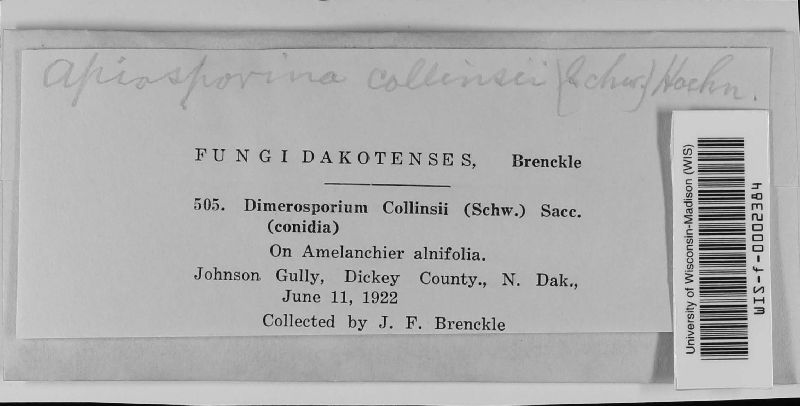 Apiosporina collinsii (Schw.) Hoehn.
FUNGI DAKOTENSES, Brenckle
505. Dimerosporium Collinsii (Schw.) Sacc.
(conidia)
On Amelanchier alnifolia.
Johnson Gully, Dickey County., N. Dak.,
June 11, 1922
Collected by J. F. Brenckle
University of Wisconsin-Madison (WIS)
WIS-f-0002384